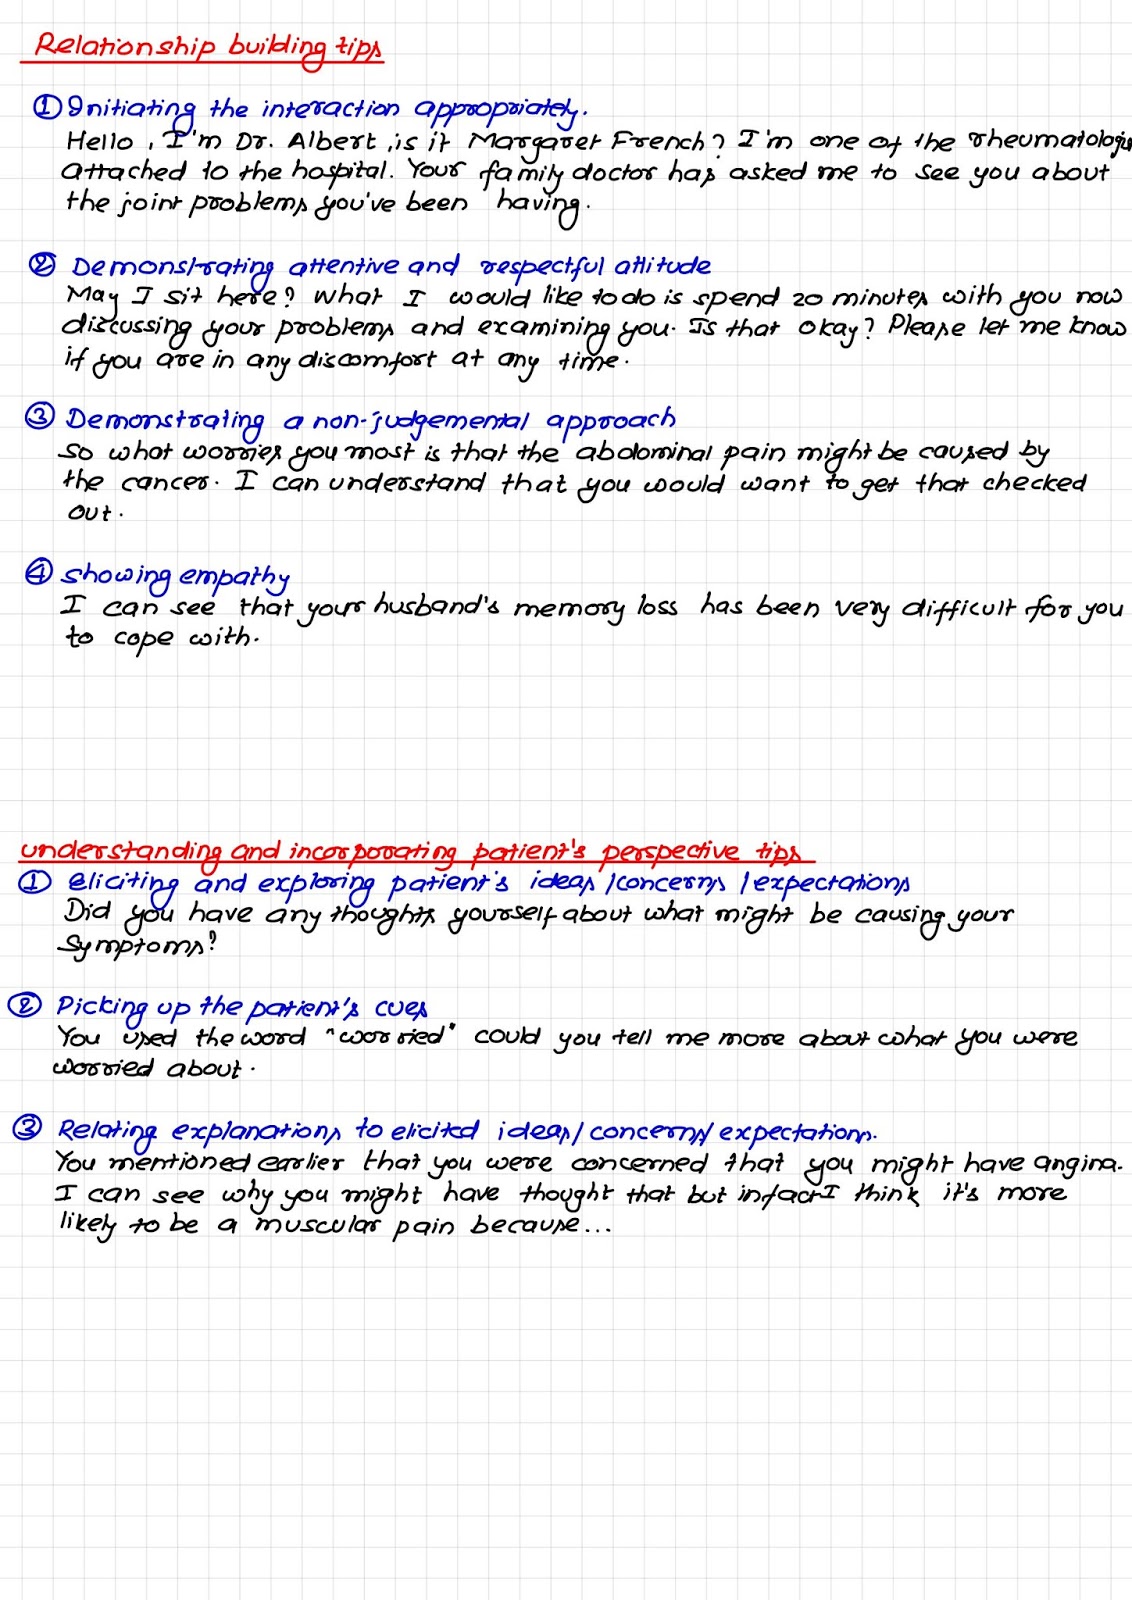 Relationship building tips
① Initiating the interaction appropriately.
Hello, I'm Dr. Albert, is it Margaret French? I'm one of the rheumatologis
attached to the hospital. Your family doctor has asked me to see you about
the joint problems you've been having.
② Demonstrating attentive and respectful attitude
May I sit here? What I would like to do is spend 20 minutes with you now
discussing your problems and examining you. Is that okay? Please let me know
if you are in any discomfort at any time.
③ Demonstrating a non-judgemental approach
So what worries you most is that the abdominal pain might be caused by
the cancer. I can understand that you would want to get that checked
out.
④ showing empathy
I can see that your husband's memory loss has been very difficult for you
to cope with.
understanding and incorporating patient's perspective tips
① Eliciting and exploring patient's ideas/concerns/expectations
Did you have any thoughts yourself about what might be causing your
symptoms?
② Picking up the patient's cues
You used the word "worried" could you tell me more about what you were
worried about.
③ Relating explanations to elicited ideas/concerns/expectations.
You mentioned earlier that you were concerned that you might have angina.
I can see why you might have thought that but infact I think it's more
likely to be a muscular pain because...